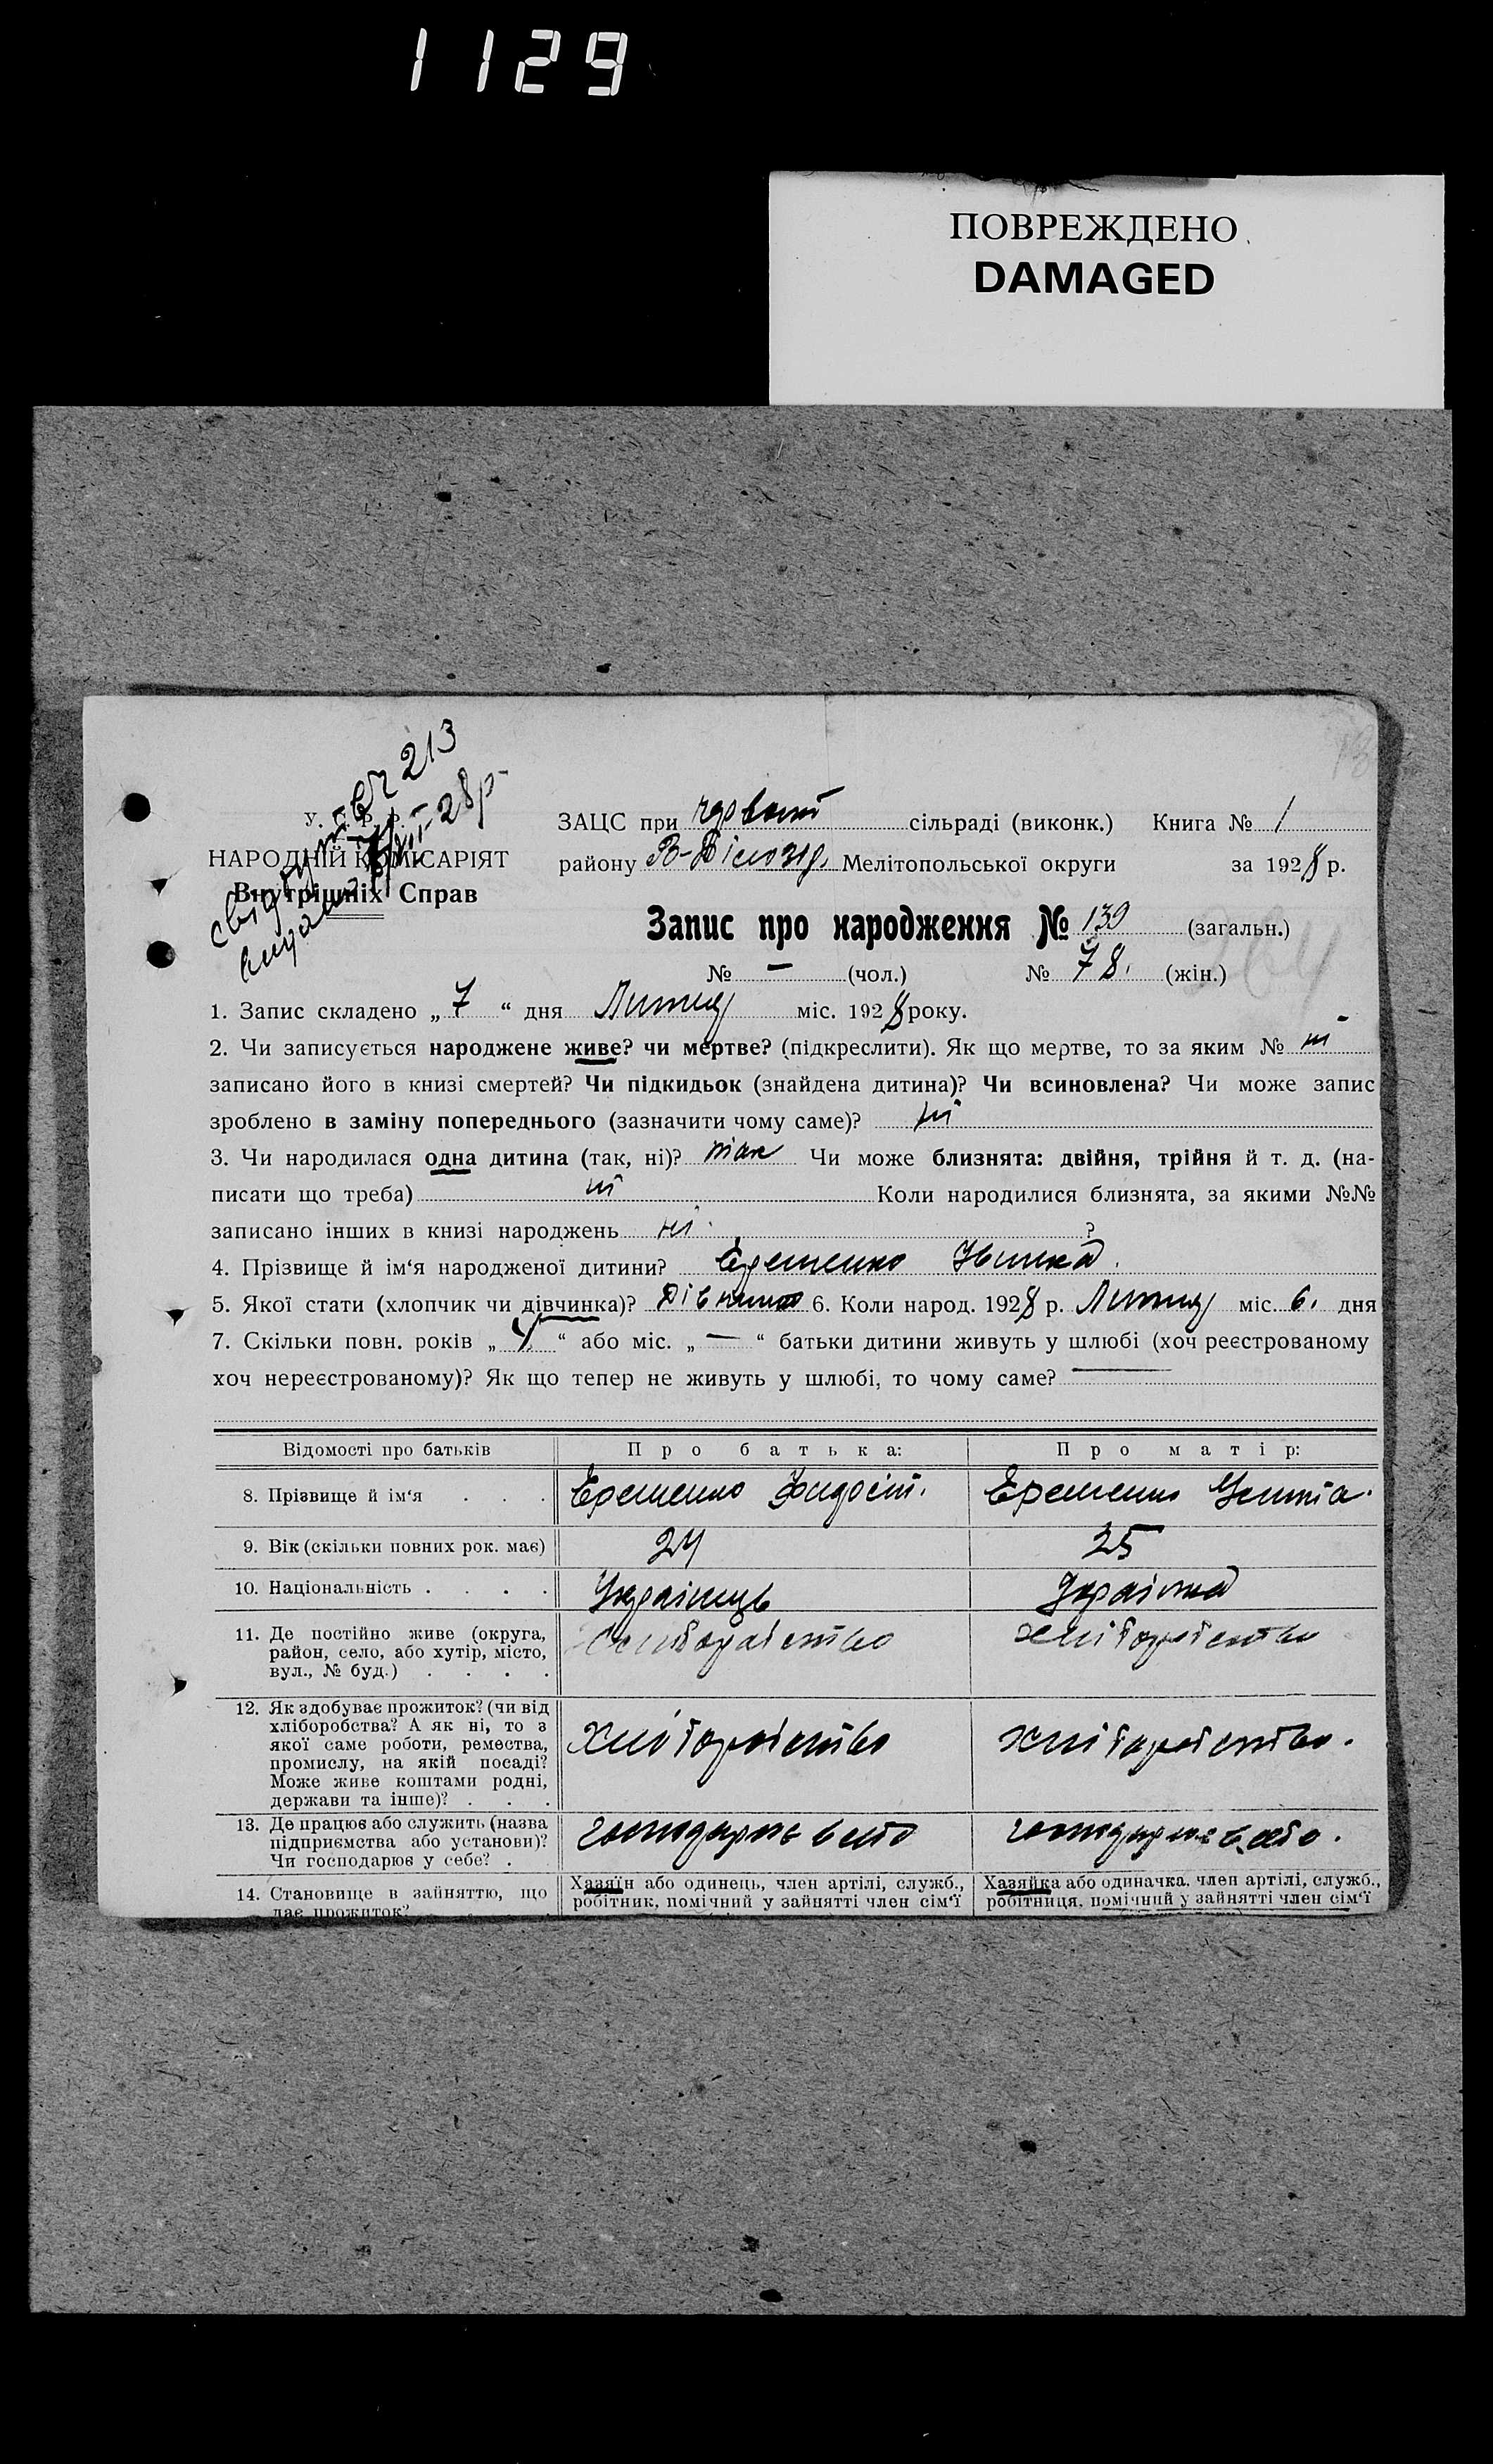 1129
ПОВРЕЖДЕНО
DAMAGED
№ 213
28р
У. С. Р. Р.
НАРОДНІЙ КОМІСАРІЯТ
Внутрішніх Справ
ЗАЦС при сільраді (виконк.) Книга № 1
району В-Білозір. Мелітопольської округи за 1928 р.
Запис про народження № 139 (загальн.)
264
№ — (чол.) № 78. (жін.)
1. Запис складено „ 7 “ дня Липня міс. 1928 року.
2. Чи записується народжене живе? чи мертве? (підкреслити). Як що мертве, то за яким № ні
записано його в книзі смертей? Чи підкидьок (знайдена дитина)? Чи всиновлена? Чи може запис
зроблено в заміну попереднього (зазначити чому саме)? ні
3. Чи народилася одна дитина (так, ні)? так Чи може близнята: двійня, трійня й т. д. (на-
писати що треба) ні Коли народилися близнята, за якими №№
записано інших в книзі народжень ні ?
4. Прізвище й ім‘я народженої дитини? Єременко
5. Якої стати (хлопчик чи дівчинка)? Дівчинка 6. Коли народ. 1928 р. Липня міс. 6. дня
7. Скільки повн. років „ “ або міс. „ — “ батьки дитини живуть у шлюбі (хоч реєстрованому
хоч нереєстрованому)? Як що тепер не живуть у шлюбі, то чому саме? —
Відомості про батьків Про батька: Про матір:
8. Прізвище й ім‘я . . . Єременко Єременко
9. Вік (скільки повних рок. має) 24 25
10. Національність . . . . Українець Українка
11. Де постійно живе (округа,
район, село, або хутір, місто,
вул., № буд.) . . . .
хліборобство хліборобство
12. Як здобуває прожиток? (чи від
хліборобства? А як ні, то з
якої саме роботи, ремества,
промислу, на якій посаді?
Може живе коштами родні,
держави та інше)? . . .
хліборобство хліборобство.
13. Де працює або служить (назва
підприємства або установи)?
Чи господарює у себе? .
14. Становище в зайняттю, що
дає прожиток?
Хазяїн або одинець, член артілі, служб.,
робітник, помічний у зайнятті член сім‘ї
Хазяйка або одиначка, член артілі, служб.,
робітниця, помічний у зайнятті член сім‘ї